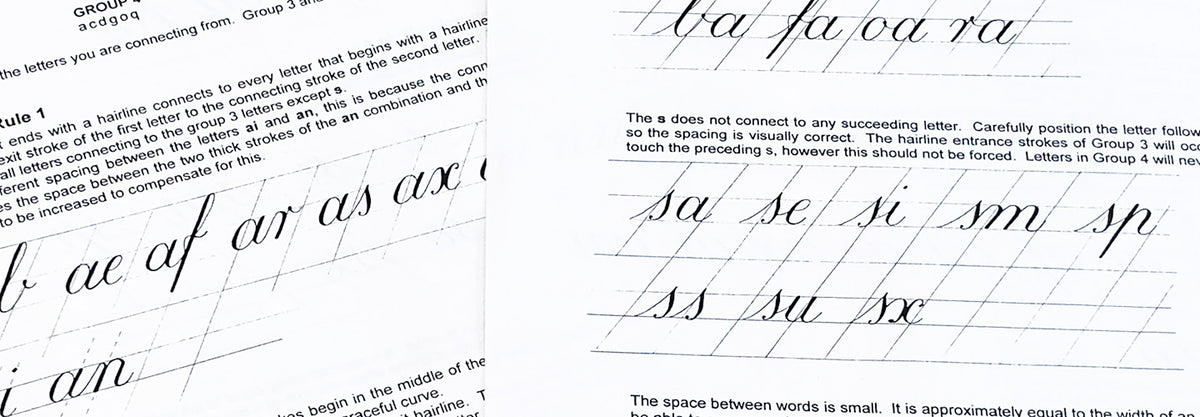 GROUP
acdgoq
the letters you are connecting from. Group 3
Rule 1
ends with a hairline connects to every letter that begins with a hairline
exit stroke of the first letter to the connecting stroke of the second letter.
all letters connecting to the group 3 letters except s.
spacing between the letters ai and an, this is because the
the space between the two thick strokes of the an combination and
to be increased to compensate for this.
b ae af ar as ax
i an
begin in the middle of the
graceful curve.
hairline.
ba fa oa ra
The s does not connect to any succeeding letter. Carefully position the letter
so the spacing is visually correct. The hairline entrance strokes of Group 3 will
touch the preceding s, however this should not be forced. Letters in Group 4 will
sa se si sm sp
ss su sx
The space between words is small. It is approximately equal to the width of